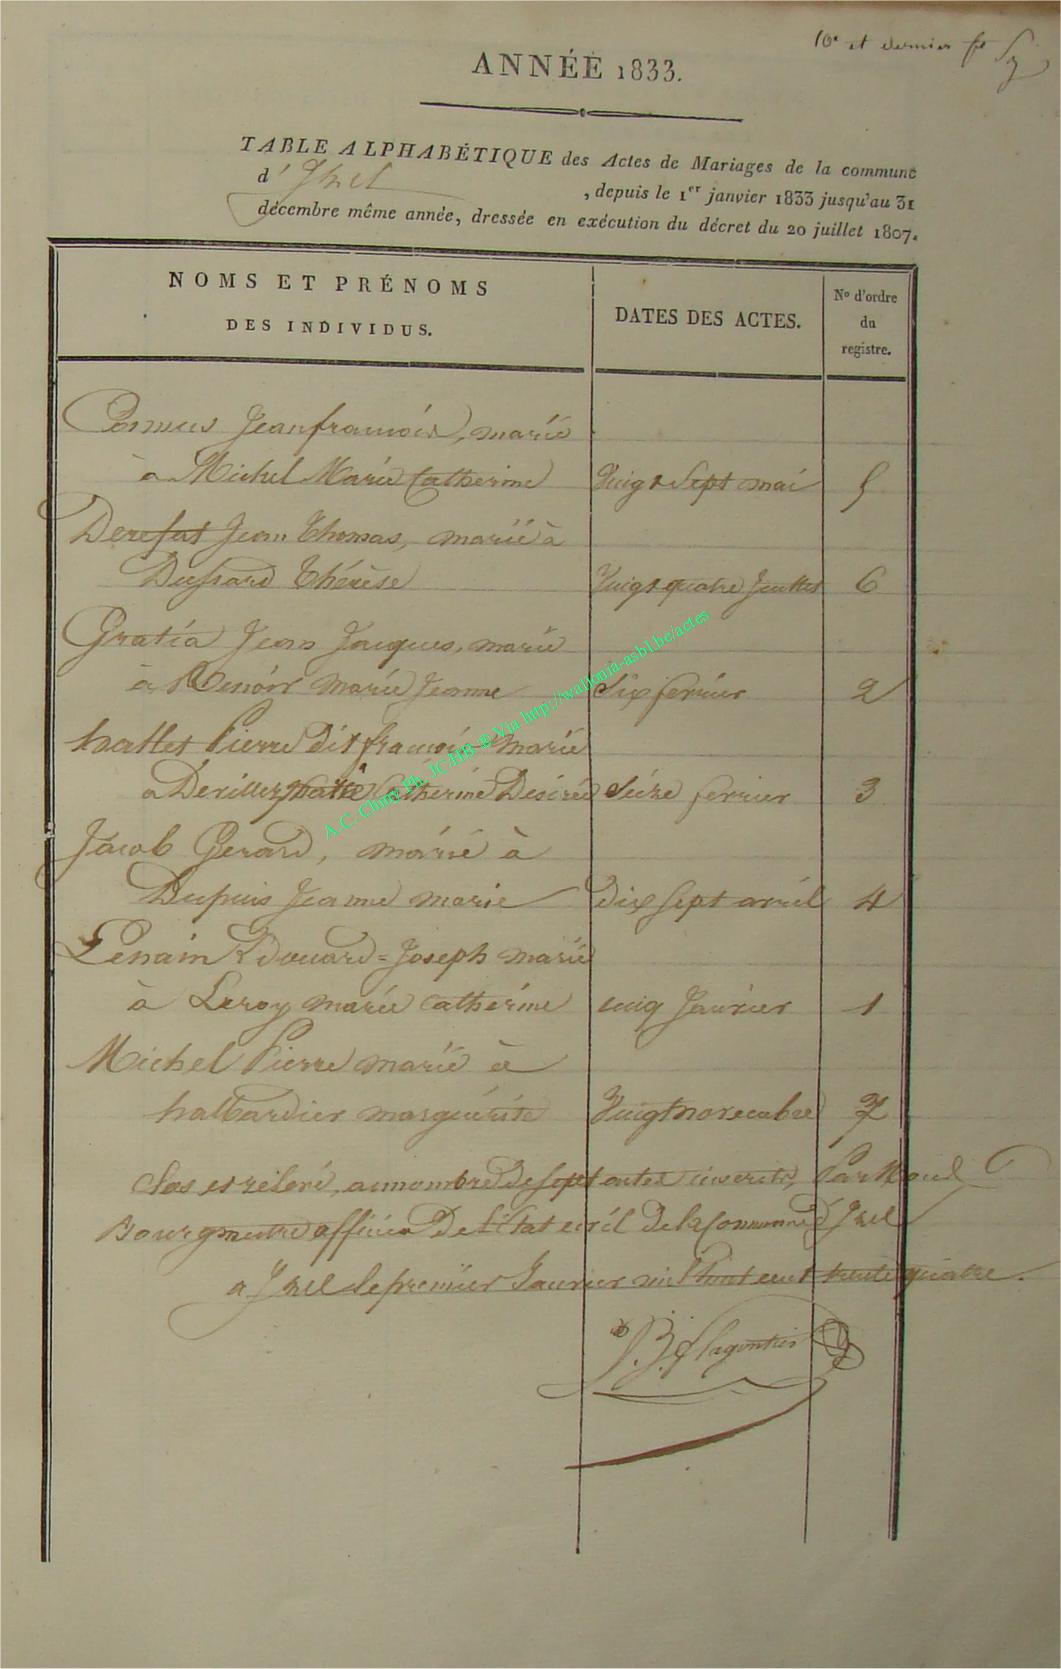 10e et dernier ft
ANNÉE 1833.
TABLE ALPHABÉTIQUE des Actes de Mariages de la commune
d' Izel , depuis le 1er janvier 1833 jusqu'au 31
décembre même année, dressée en exécution du décret du 20 juillet 1807.
NOMS ET PRÉNOMS
DES INDIVIDUS.
DATES DES ACTES.
No d'ordre
du
registre.
Jean françois, marié
à Michel Marie Catherine Vingt Sept mai 5
Derefat Jean Thomas, marié à
Dussard Thérèse Vingt quatre Juillet 6
Gratia Jean Jacques, marié
à Renoir Marie Jeanne Six fevrier 2
hallet Pierre Dit françois marié
à Catherine Desirée Seize fevrier 3
Jacob Gerard, marié à
Dupuis Jeanne marie Dix Sept avril 4
Lenain Edouard=Joseph marié
à Leroy marie Catherine cinq Janvier 1
Michel Pierre marié à
halbardier marguérite Vingt novembre 7
Clos et aunombre De Sept actes inscrits, Par Nous
Bourgmestre officier De L'état civil De la Commune d'Izel
a Izel le premier Janvier mil huit cent trente quatre.
A.C. Chiny Ph. JC.HB © Via http://wallonia-asbl.be/actes